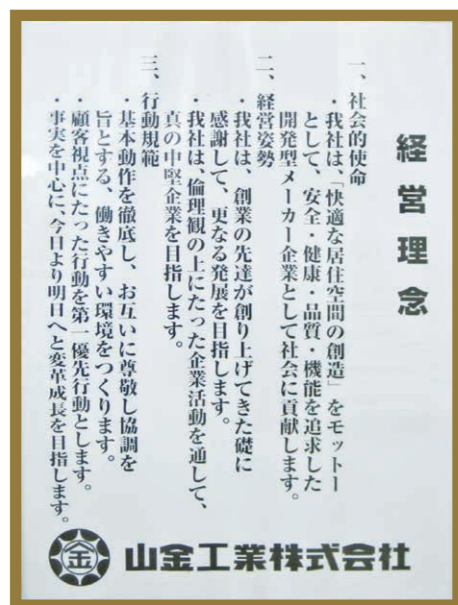 経営理念
一、社会的使命
・我社は、「快適な居住空間の創造」をモットー
として、安全・健康・品質・機能を追求した
開発型メーカー企業として社会に貢献します。
二、経営姿勢
・我社は、創業の先達が創り上げてきた礎に
感謝して、更なる発展を目指します。
・我社は、倫理観の上にたった企業活動を通して、
真の中堅企業を目指します。
三、行動規範
・基本動作を徹底し、お互いに尊敬し協調を
旨とする、働きやすい環境をつくります。
・顧客視点にたった行動を第一優先行動とします。
・事実を中心に、今日より明日へと変革成長を目指します。
金
山金工業株式会社